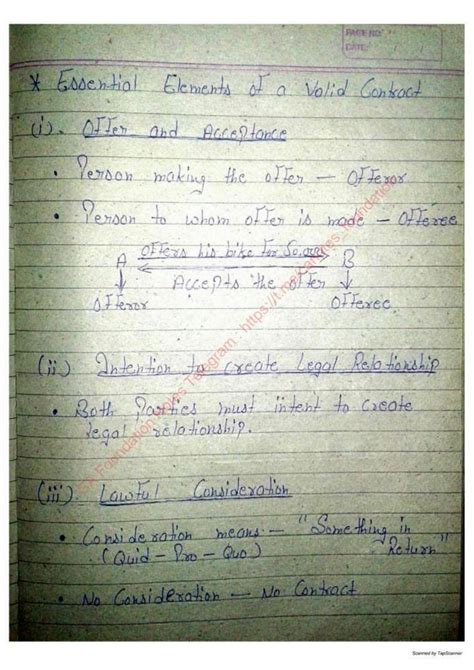 PAGE NO.
DATE: / /
* Essential Elements of a Valid Contract
(i). Offer and Acceptance
• Person making the offer — Offeror
• Person to whom offer is made — Offeree
A offers his bike for 50,000 B
Accepts the offer
offeror offeree
(ii) Intention to create Legal Relationship
• Both Parties must intent to create
legal relationship.
(iii) Lawful Consideration
• Consideration means — "Something in
(Quid - Pro - Quo) Return"
• No Consideration — No Contract
CA Foundation Telegram - https://t.me/ foundation
Scanned by TapScanner